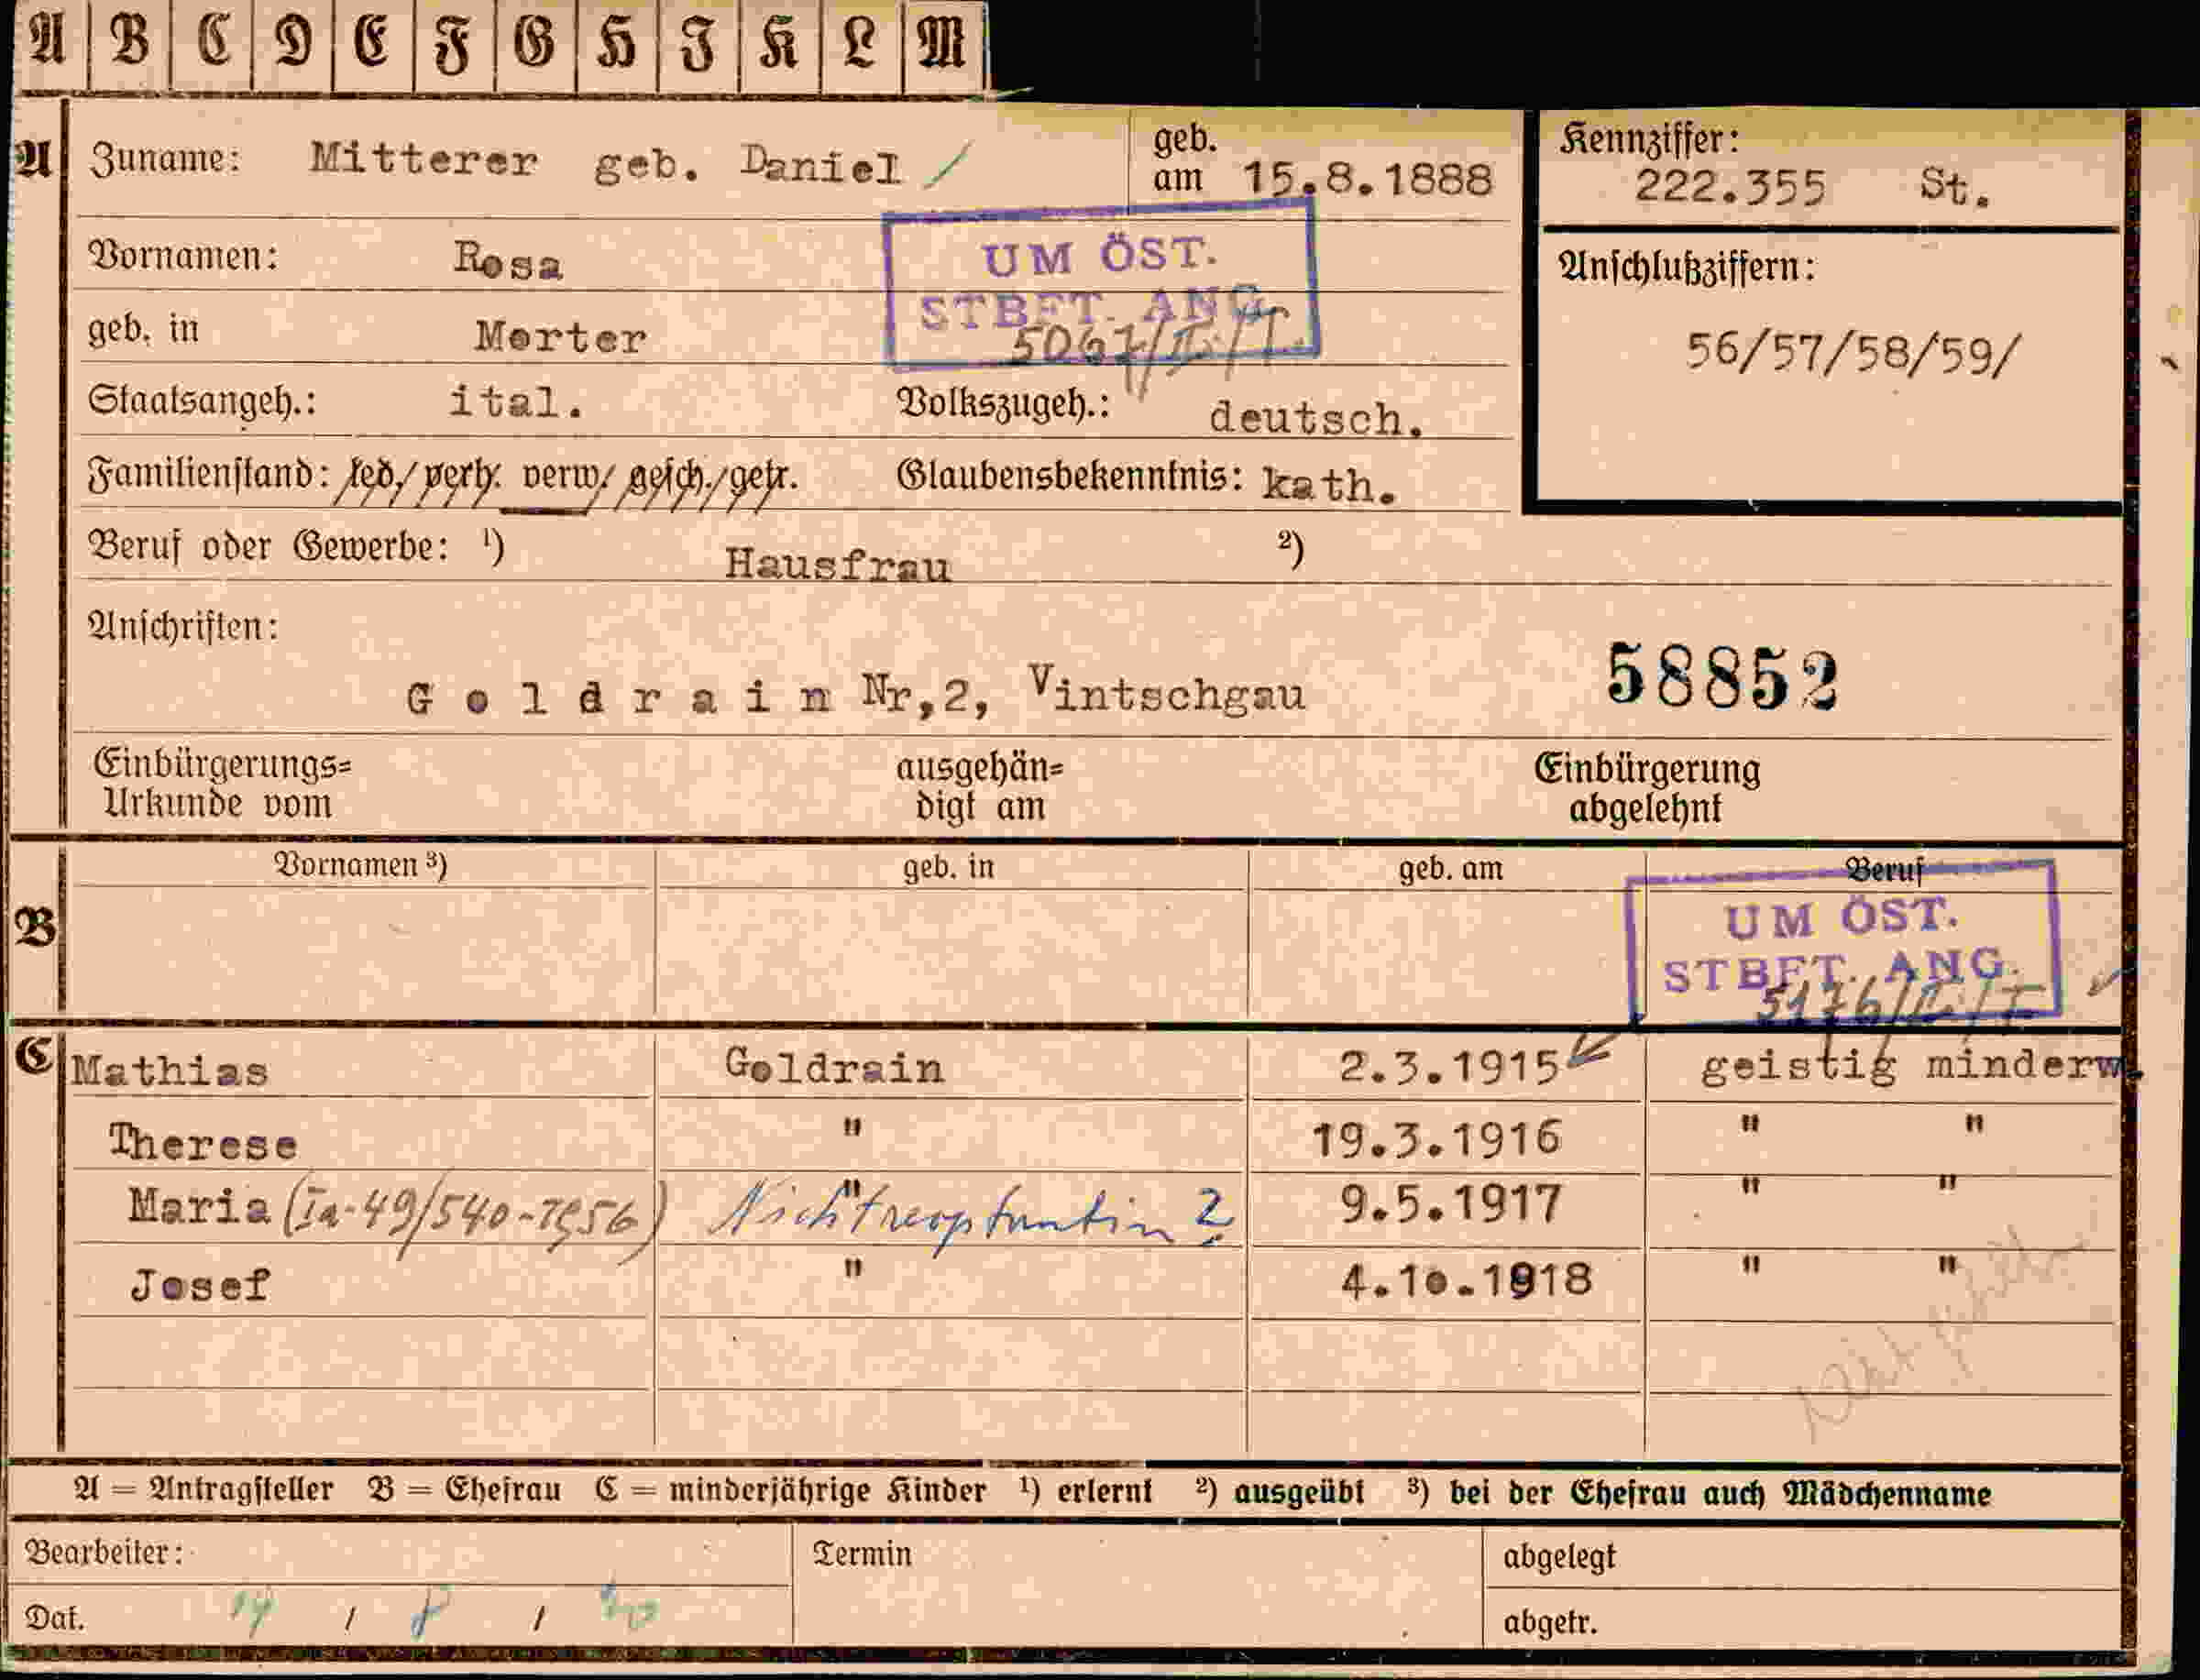 A B C D E F G H I K L M
A Zuname: Mitterer geb. Daniel / geb. am 15.8.1888 Kennziffer: 222.355 St.
Vornamen: Rosa
UM ÖST.
STBFT. ANG.
5067/II/T.
Anschlußziffern:
56/57/58/59/
geb. in Morter
Staatsangeh.: ital. Volkszugeh.: deutsch.
Familienstand: led./verh. verw/ gesch./getr. Glaubensbekenntnis: kath.
Beruf oder Gewerbe: ¹) Hausfrau ²)
Anschriften:
Goldrain Nr,2, Vintschgau 58852
Einbürgerungs=
Urkunde vom
ausgehän=
digt am
Einbürgerung
abgelehnt
B Vornamen ³) geb. in geb. am Beruf
UM ÖST.
STBFT. ANG.
5176/II/T
C Mathias Goldrain 2.3.1915 geistig minderw.
Therese " 19.3.1916 " "
Maria (Ia-49/540-1956) " Nichtreoptantin ? 9.5.1917 " "
Josef " 4.10.1918 " "
A = Antragsteller B = Ehefrau C = minderjährige Kinder ¹) erlernt ²) ausgeübt ³) bei der Ehefrau auch Mädchenname
Bearbeiter: Termin abgelegt
Dat. / / abgetr.